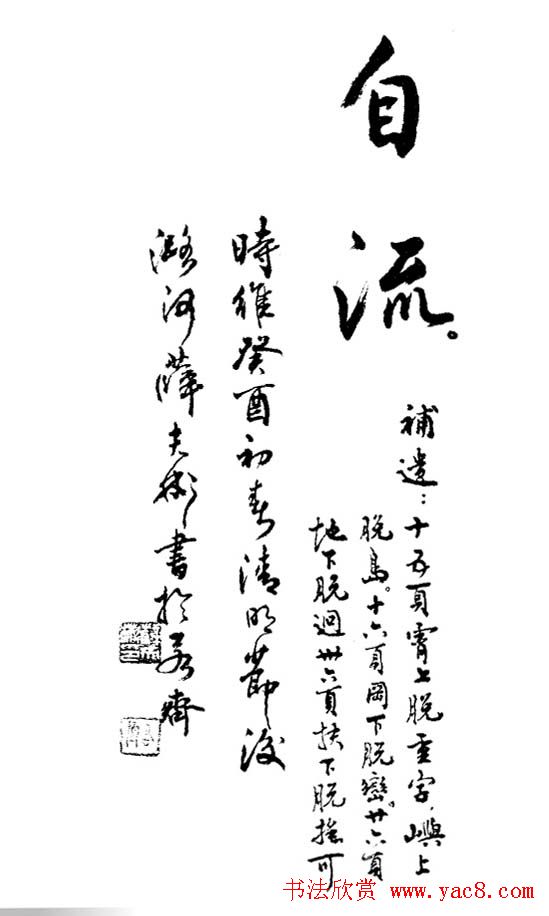 自流。
補遺：十五頁霄上脫重字，嶼上
脫島。十六頁岡下脫巒。廿六頁
地下脫迥卅六頁扶下脫搖可
時維癸酉初春清明節後
潞河薛夫彬書於若齋
书法欣赏 www.yac8.com